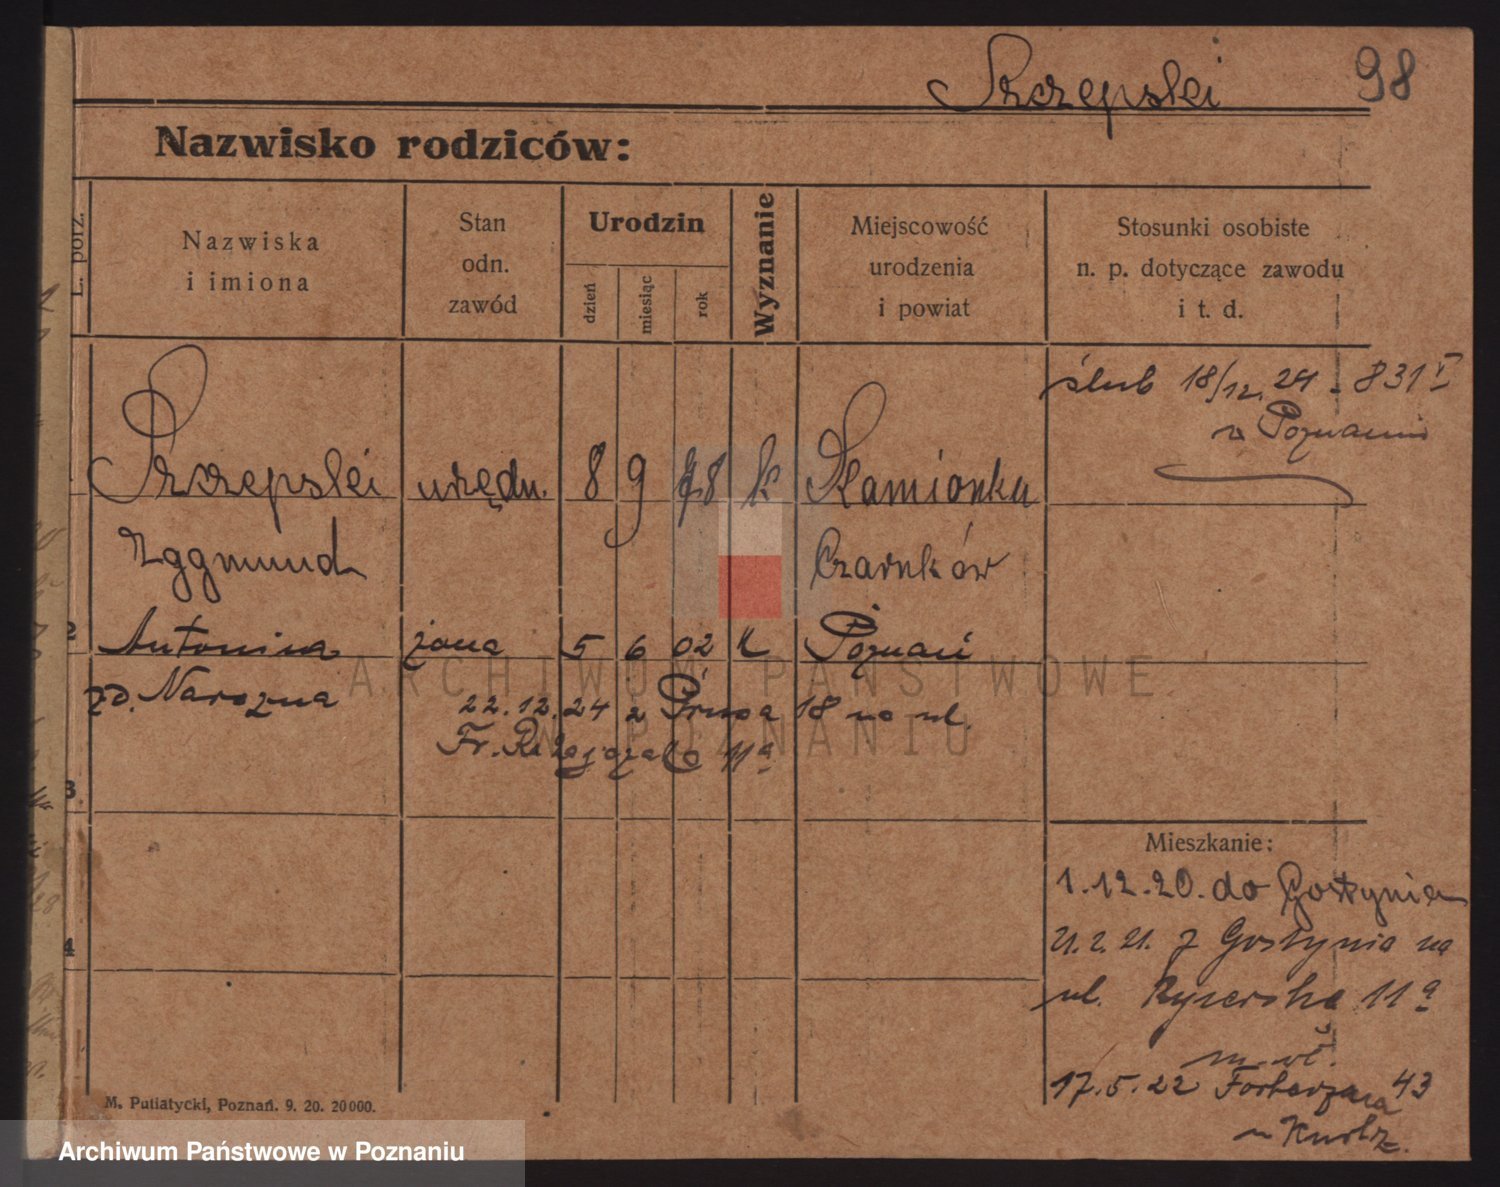 Szczepski 98
Nazwisko rodziców:
L. porz.
Nazwiska
i imiona
Stan
odn.
zawód
Urodzin
dzień
miesiąc
rok
Wyznanie
Miejscowość
urodzenia
i powiat
Stosunki osobiste
n. p. dotyczące zawodu
i t. d.
ślub 18/12. 24 - 831 I
w Poznaniu
Szczepski urzędn. 8 9 78 k Kamionka
Zygmund Czarnków
2 Antonina żona 5 6 02 k Poznań
zd. Narożna
22.12.24 z Prusa 18 na ul.
Fr. Ratajczaka 11a
3
4
Mieszkanie:
1.12.20. do Gostynia
21.2.21. z Gostynia na
ul. Rycerska 11a
17.5.22 43
M. Putiatycki, Poznań. 9. 20. 20000.
ARCHIWUM PAŃSTWOWE
W POZNANIU
Archiwum Państwowe w Poznaniu